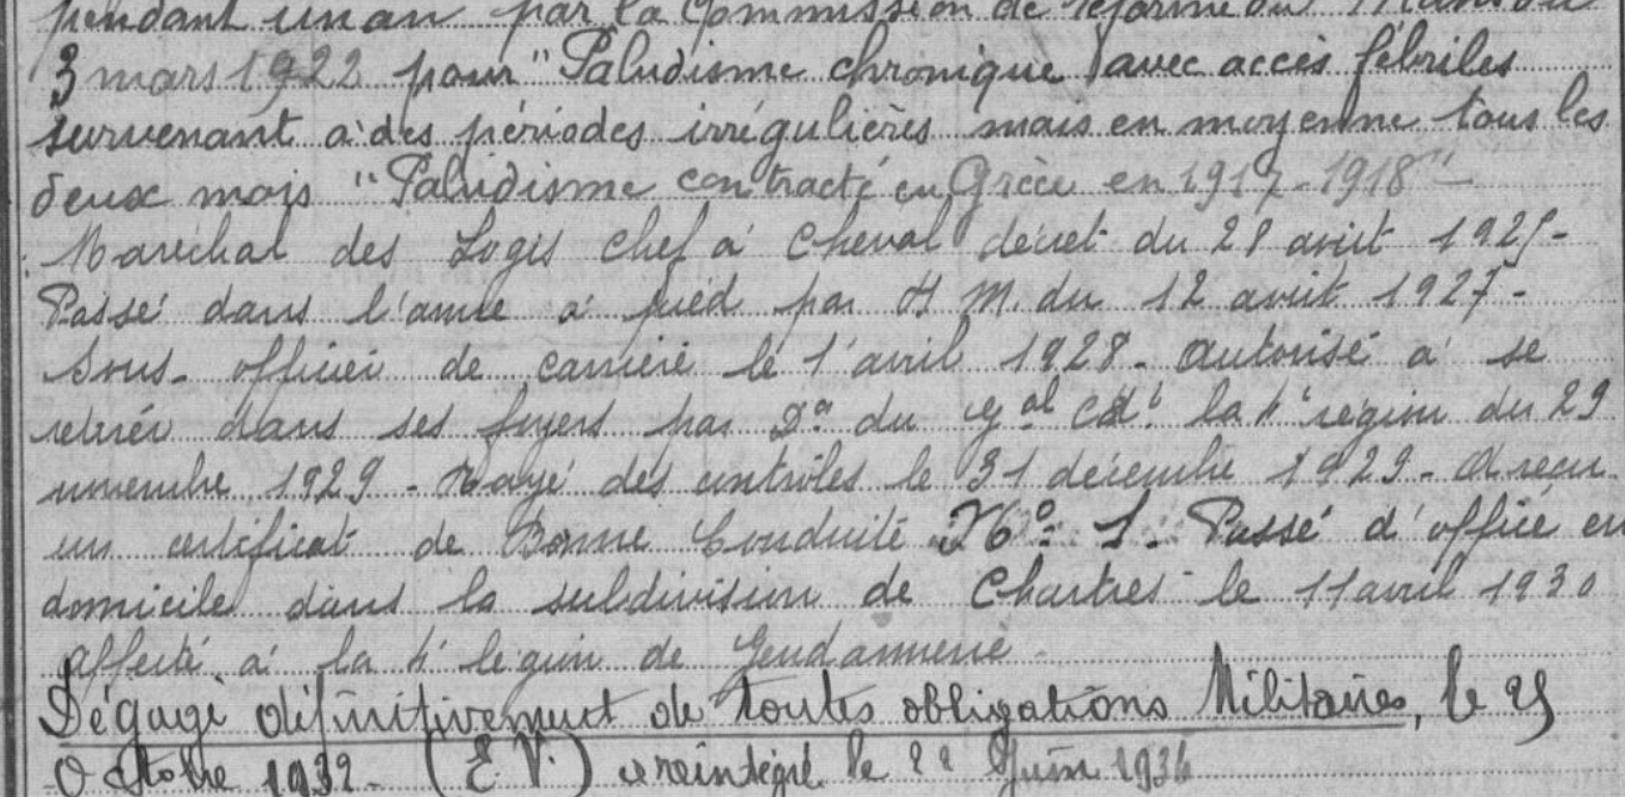 pendant un an par la Commission de réforme du Mans du
3 mars 1922 pour "Paludisme chronique avec accès fébriles
survenant à des périodes irrégulières mais en moyenne tous les
deux mois "Paludisme contracté en Grèce en 1917-1918"
Maréchal des Logis chef à cheval décret du 28 août 192
Passé dans l'arme à pied par M. du 12 août 1927-
Sous-officier de carrière le 1 avril 1928- autorisé à se
retirer dans ses foyers par Don du Gal Cdt la 4e région du 29
novembre 1929 - Rayé des contrôles le 31 décembre 1929- A reçu
un certificat de Bonne Conduite No 1. Passé d'office en
domicile dans la subdivision de Chartres le 11 avril 1930
affecté à la 4e légion de Gendarmerie-
Dégagé définitivement de toutes obligations Militaires, le
Octobre 1932- (E.V.) réintégré le 22 Juin 193